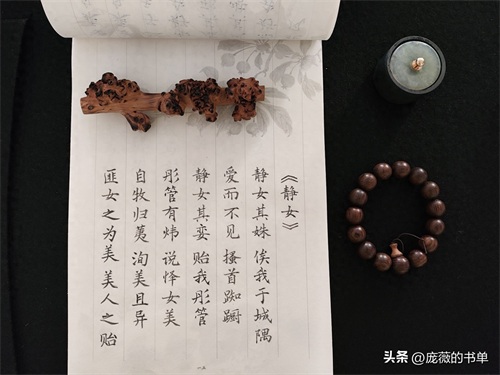 《静女》
静女其姝 俟我于城隅
爱而不见 搔首踟蹰
静女其娈 贻我彤管
彤管有炜 说怿女美
自牧归荑 洵美且异
匪女之为美 美人之贻
头条 @庞薇的书单